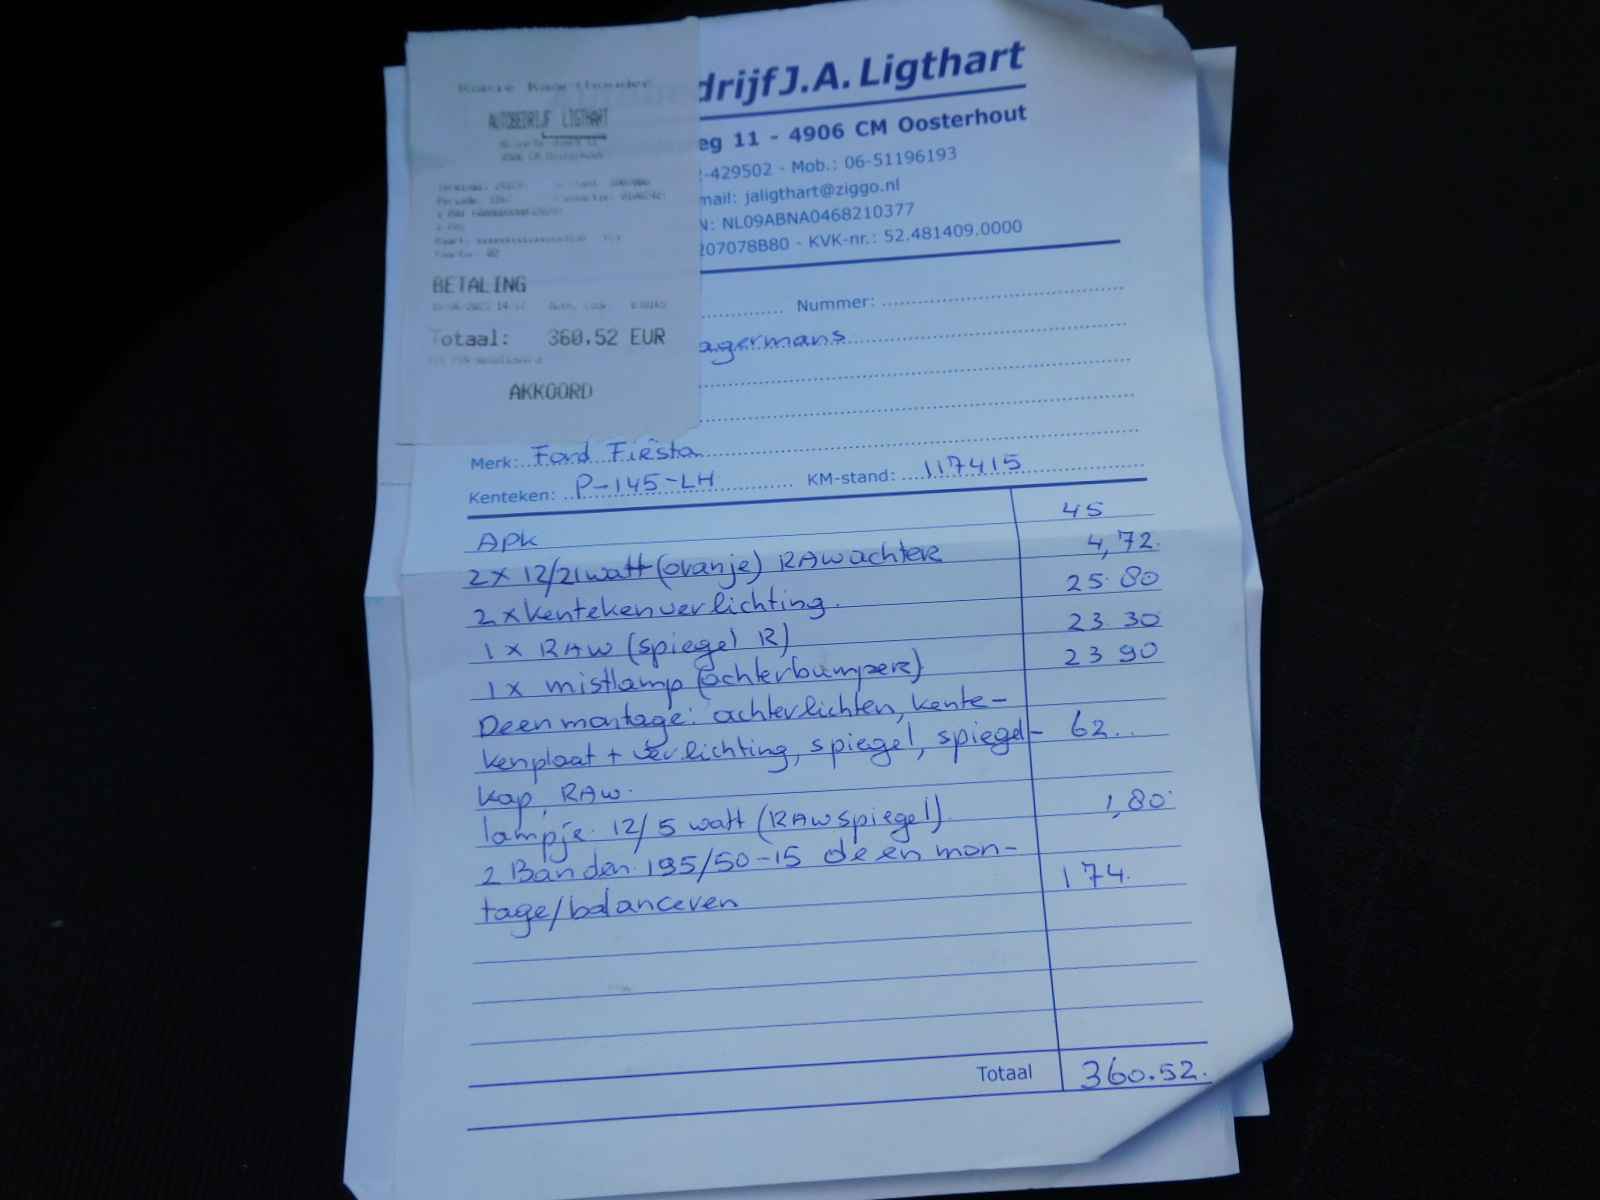 Kopie Kaarthouder
AUTOBEDRIJF LIGTHART
4906 CM Oosterhout
BETALING
Totaal: 360,52 EUR
AKKOORD
drijf J.A. Ligthart
eg 11 - 4906 CM Oosterhout
-429502 - Mob.: 06-51196193
mail: jaligthart@ziggo.nl
N: NL09ABNA0468210377
207078B80 - KVK-nr.: 52.481409.0000
Nummer:
agermans
Merk: Ford Fiësta
Kenteken: P-145-LH KM-stand: 117415
APK 45
2x 12/21watt (oranje) RAW achter 4,72
2x kentekenverlichting. 25.80
1x RAW (spiegel R) 23.30
1x mistlamp (achterbumper) 23 90
De en montage: achterlichten, kente-
kenplaat + verlichting, spiegel, spiegel- 62..
kap, RAW.
lampje 12/5 watt (RAW spiegel) 1,80
2 Banden 195/50-15 de en mon-
tage/balanceren 174.
Totaal 360.52.